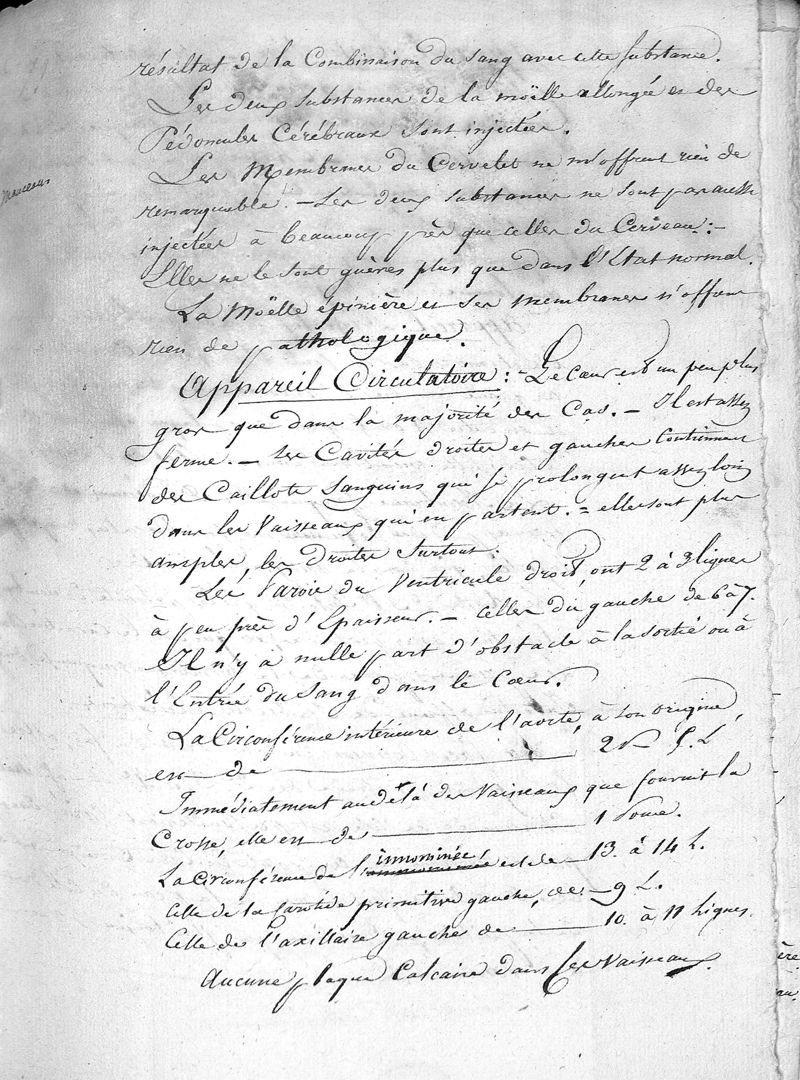 résultat de la Combinaison du sang avec cette substance.
Les deux substances de la moëlle allongée et des
Pédoncules Cérébraux sont injectées.
Les Membranes du Cervelet ne m'offrent rien de
remarquable. – Les deux substances ne sont pas aussi
injectées à beaucoup près que celles du Cerveau :-
Elles ne le sont guères plus que dans l'Etat normal.
La Moëlle épinière et ses membranes n'offrent
rien de pathologique.
Appareil Circulatoire : - Le Cœur est un peu plus
gros que dans la majorité des Cas. – Il est assez
ferme. – Les Cavités droites et gauches Contiennent
des Caillots Sanguins qui se prolongent assez loin
dans les Vaisseaux qui en partent. = elles sont plus
amples, les droites surtout.
Les Parois du Ventricule droit, ont 2 à 3 lignes
à peu près d'Epaisseur. – Celles du gauche de 6 à 7.
Il n'y a nulle part d'obstacle à la sortie ou à
l'Entrée du Sang dans le Cœur.
La Circonférence intérieure de l'aorte, à son origine,
est de 2 P 5. L
Immédiatement au delà des Vaisseaux que fournit la
Crosse, elle est de 1 Pouce.
La Circonférence de l'innominée, est de 13. à 14 L.
Celle de la Carotide primitive gauche, de 9 L.
Celle de l'axillaire gauche de 10. à 11 Lignes.
Aucune plaque Calcaire dans les Vaisseaux.